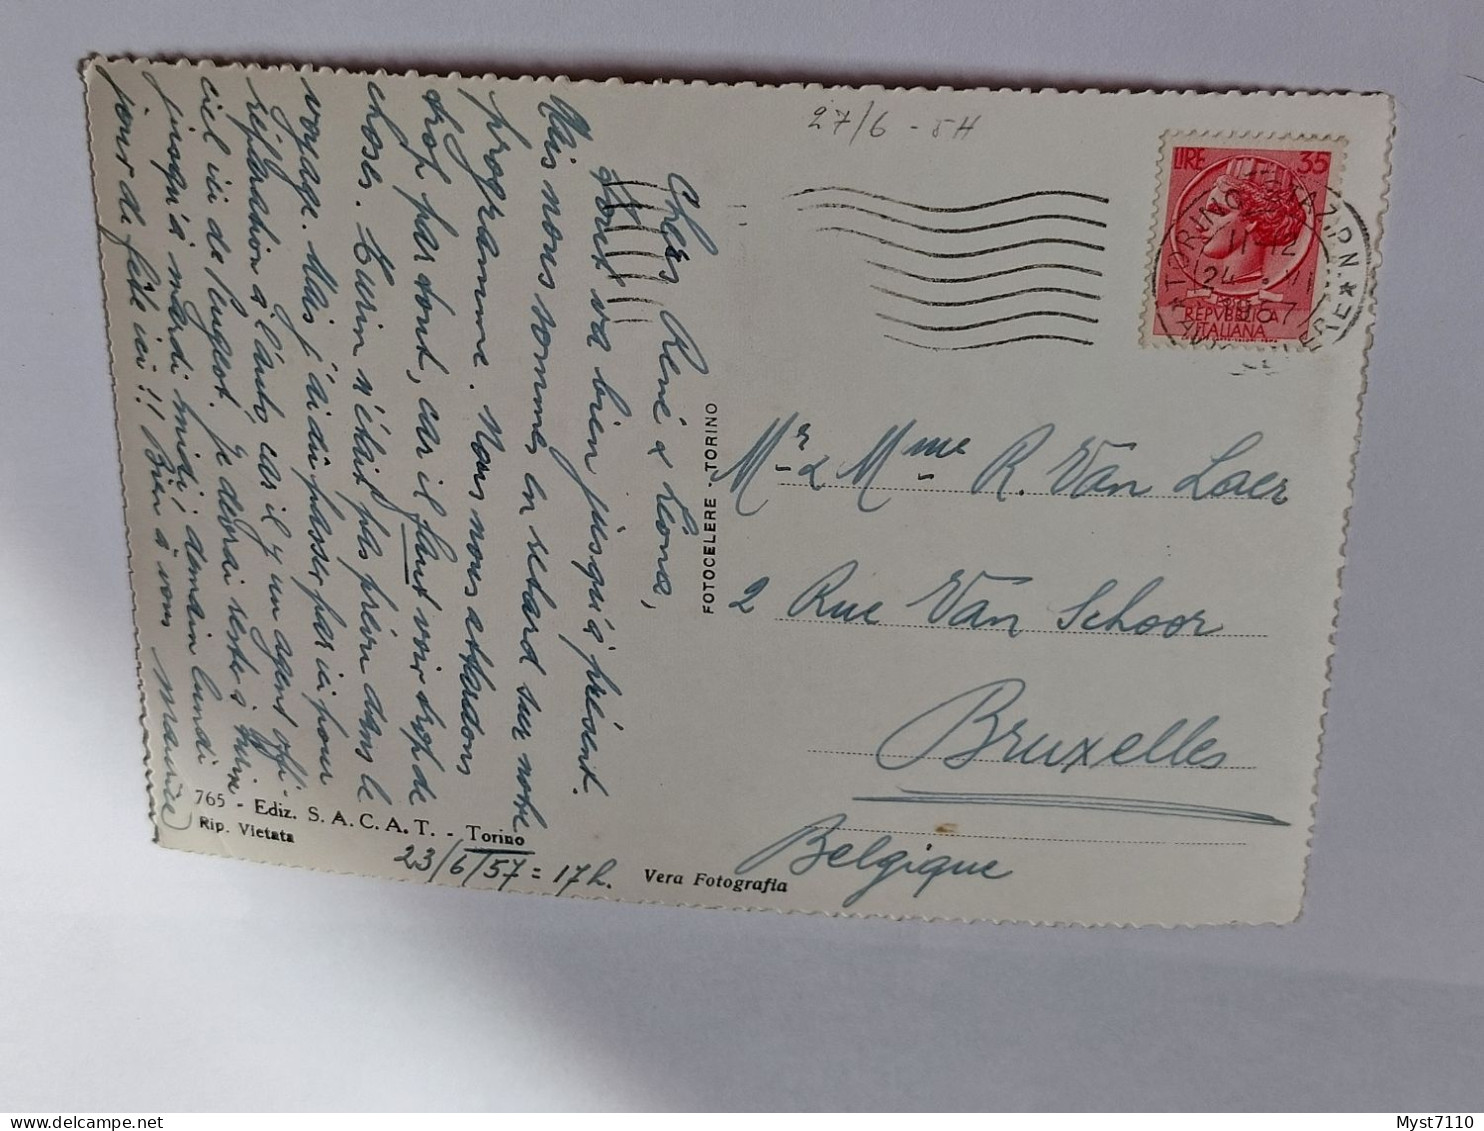 27/6 - 5H
Chers René & Léona,
Tout va bien jusqu'à présent.
Mais nous sommes en retard sur notre
programme. Nous nous attardons
trop partout, car il faut voir trop de
choses. Turin n'était pas prévu dans le
voyage. Mais j'ai dû passer par ici pour
réparation à l'auto, car il y un agent offi-
ciel ici de Peugeot. Je devrai rester à Turin
jusqu'à mardi midi! demain lundi
jour de fête ici!! Bien à vous Maurice
765 - Ediz. S. A. C. A. T. - Torino
Rip. Vietata
23/6/57 = 17h.
Vera Fotografia
FOTOCELERE - TORINO
LIRE 35
REPVBBLICA
ITALIANA
TORINO
24
Mr & Mme R. Van Laer
2 Rue Van Schoor
Bruxelles
Belgique
Myst7110